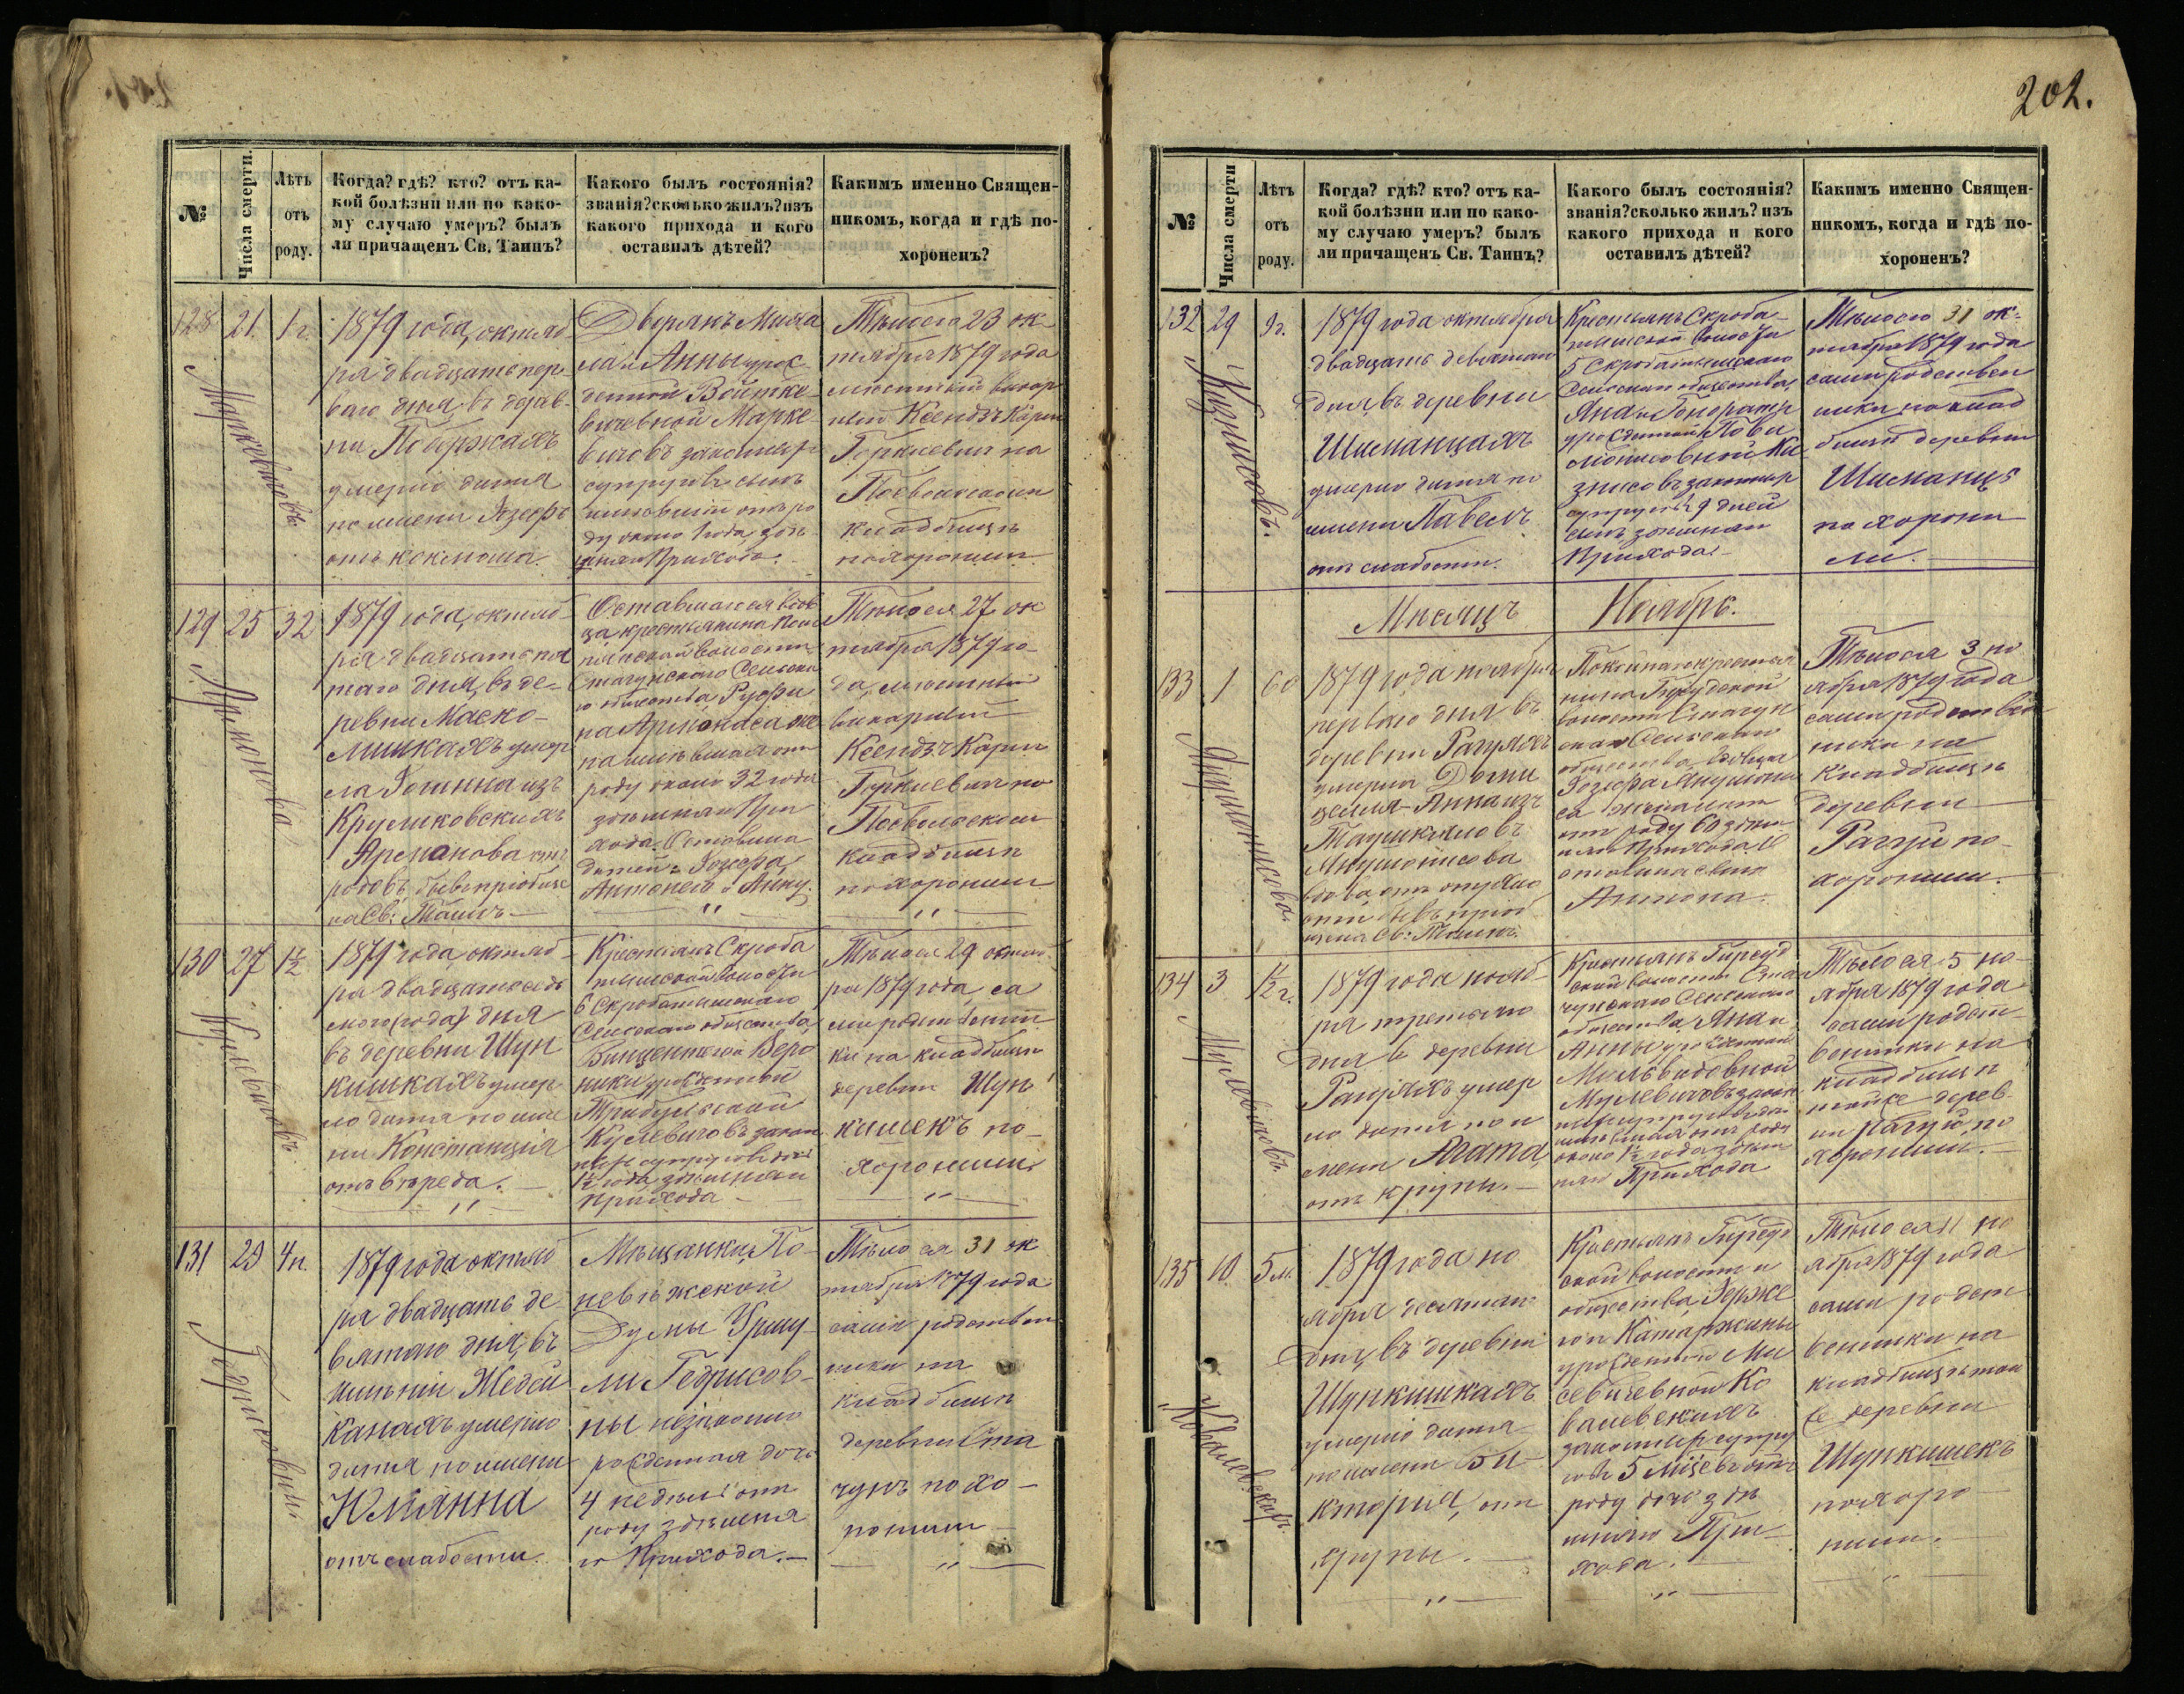 202.
№
Числа смерти.
Лѣтъ
отъ
роду.
Когда? гдѣ? кто? отъ ка-
кой болѣзни или по како-
му случаю умеръ? былъ
ли причащенъ Св. Таинъ?
Какого былъ состоянія?
званія? сколько жилъ? изъ
какого прихода и кого
оставилъ дѣтей?
Какимъ именно Священ-
никомъ, когда и гдѣ по-
хороненъ?
128
21.
1 г.
Марковичовъ
1879 года, октяб
ря двадцать пер
ваго дня, въ дерев-
ни
умерло дитя
по имени Іозефъ
отъ коклюша.
Дворянъ Миха
ла и Анны урож
денной Войтке
вичевной Марке
вичовъ законныхъ
супруговъ сынъ
имѣвшій отъ ро
ду около 1 года, здѣ
шняго Прихода.
Тѣло его 23 ок
тября 1879 года
мѣстный викар
ный Ксендзъ Карль
на
Посвольскомъ
кладбищѣ
похоронилъ
129
25
32
1879 года, октяб
ря двадцать пя
таго дня, въ де-
ревни Маско-
лишкахъ умер
ла изъ
Круликовскихъ
отъ
родовъ, бывъ пріобще
на Св: Таинъ
Оставшагося вдов
ца крестьянина
волости
Стачунскаго Сельска
го общества,
же
на имѣвшая отъ
роду около 32 года
здѣшняго При
хода. Оставила
дѣтей: Іозефа,
Антонего и Анну.
Тѣло ея 27 ок
тября 1879 го-
да, мѣстный
викарный
Ксендзъ
на
Посвольскомъ
кладбищѣ
похоронилъ
130
27
1½
Кулевичовъ
1879 года октяб
ря двадцать седь
маго дня
въ деревни Шун
кишкахъ умер
ло дитя по име
ни Констанція
отъ вереда.
Крестьянъ Скроба
тишской волости
6 Скробатишскаго
Сельскаго общества,
Винцентего и Веро
ники урожденной
Кулевичовъ закон
ныхъ супруговъ дочь
1½ года, здѣшняго
прихода
Тѣло ея 29 октяб
ря 1879 года, са
ми родственни
ки на кладбищѣ
деревни Шун
кишекъ по-
хоронили.
131
29
4 н.
1879 года октяб
ря двадцать де
вятаго дня, въ
имѣніи Жедей
канахъ умерло
дитя по имени
Юліанна
отъ слабости.
Мѣщанки По-
невѣжской
Думы Уршу-
ли Гедрисов-
ны незаконно
рожденная дочь
4 недѣль отъ
роду здѣшня
го Прихода.
Тѣло ея 31 ок
тября 1879 года
сами родствен
ники на
кладбищѣ
деревни Ста
чунъ похо-
ронили
№
Числа смерти
Лѣтъ
отъ
роду.
Когда? гдѣ? кто? отъ ка-
кой болѣзни или по како-
му случаю умеръ? былъ
ли причащенъ Св. Таинъ?
Какого былъ состоянія?
званія? сколько жилъ? изъ
какого прихода и кого
оставилъ дѣтей?
Какимъ именно Священ-
никомъ, когда и гдѣ по-
хороненъ?
132
29
Кузнисовъ.
1879 года октября
двадцать девятаго
дня, въ деревни
Шиманцахъ
умерло дитя по
имени Павелъ
отъ слабости.
Крестьянъ Скроба-
тишской волости
5 Скробатишскаго
Сельскаго общества,
Яна и Гонораты
урожденной
законныхъ
супруговъ 9 дней
сынъ здѣшняго
Прихода.
Тѣло его 31 ок-
тября 1879 года
сами родствен
ники на клад
бищѣ деревни
Шиманцъ
похорони
ли.
Мѣсяцъ Ноябрь.
133
1
60
Янушонисова.
1879 года ноября
перваго дня въ
деревни Рагуяхъ
умерла
Анна изъ
Янушонисова
вдова, отъ опухло
сти бывъ пріоб
щена Св: Таинъ.
Покойнаго крестья
нина
волости Стачун
скаго Сельскаго
общества,
Іозефа Янушони
са
отъ роду 60 здѣш
няго Прихода.
оставила сына
Антона.
Тѣло ея 3 но
ября 1879 года
сами родствен
ники на
кладбищѣ
деревни
Рагуй по-
хоронили.
134
3
1½ г.
Мулевичовъ
1879 года нояб-
ря третьяго
дня въ деревни
Рагуяхъ умер
ло дитя по и
мени Агата
отъ крупы.
Крестьянъ
волости Ста
чунскаго Сельскаго
общества, Яна и
Анны урожденной
Мулевичовъ закон
ныхъ супруговъ дочь
имѣвшая отъ роду
около 1½ года здѣш
няго Прихода
Тѣло ея 5 но-
ября 1879 года
сами родст-
венники на
кладбищѣ
тойже дерев
ни Рагуй, по
хоронили.
135
10.
5 м.
Ковалевскихъ
1879 года но
ября десятаго
дня, въ деревни
Шункишкахъ
умерло дитя
по имени Ви-
кторія, отъ
крупы.
Крестьянъ
волости и
общества,
и Катаржины
урожденной Ми
севичевной Ко
валевскихъ
законныхъ супру
говъ 5 мѣсяцевъ отъ
роду дочь здѣ
шняго При-
хода.
Тѣло ея 11 но
ября 1879 года
сами родст
венники на
кладбищѣ той
же деревни
Шункишекъ
похоро-
нили.